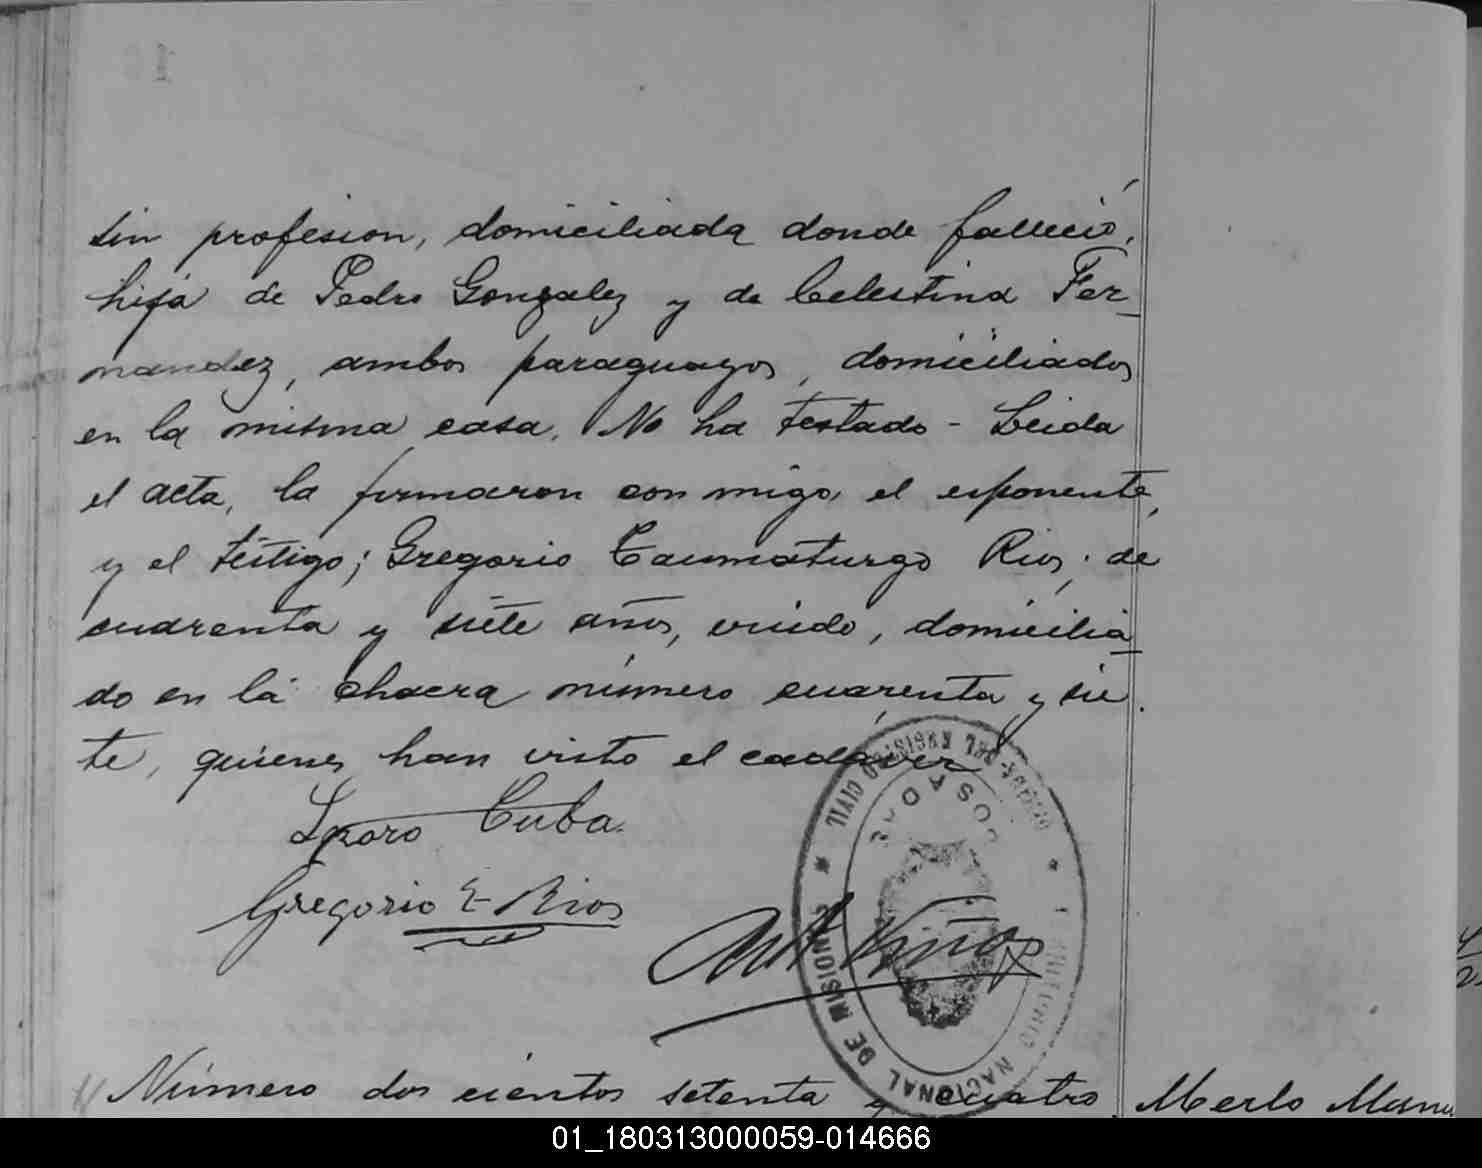 sin profesion, domiciliada donde falleció,
hija de Pedro Gonzalez y de Celestina Fer
nandez, ambos paraguayos, domiciliados
en la misma casa. No ha testado - Leida
el acta, la firmaron con migo, el esponente,
y el téstigo; Gregorio Taumaturgo Rios, de
cuarenta y siete años, viudo, domicilia
do en la chacra número cuarenta y sie
te, quienes han visto el cadáver
Cuba.
Gregorio T. Rios
DEL REGISTRO CIVIL
POSADAS
TERRITORIO NACIONAL DE MISIONES
Número dos cientos setenta y cuatro Merlo
01_180313000059-014666